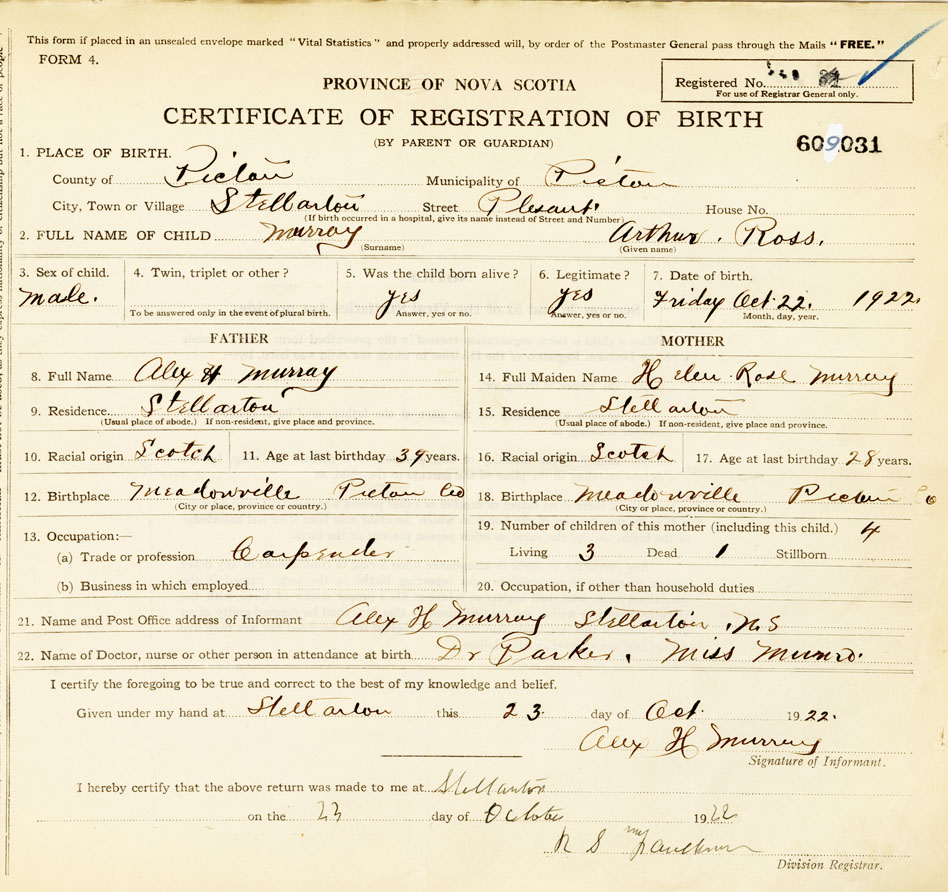 This form if placed in an unsealed envelope marked "Vital Statistics" and properly addressed will, by order of the Postmaster General pass through the Mails "FREE."
FORM 4.
PROVINCE OF NOVA SCOTIA
Registered No.
For use of Registrar General only.
CERTIFICATE OF REGISTRATION OF BIRTH
(BY PARENT OR GUARDIAN)
609031
1. PLACE OF BIRTH.
County of Pictou Municipality of Pictou
City, Town or Village Stellarton Street Plesant House No.
(If birth occurred in a hospital, give its name instead of Street and Number)
2. FULL NAME OF CHILD Murray Arthur. Ross.
(Surname) (Given name)
3. Sex of child. 4. Twin, triplet or other? 5. Was the child born alive? 6. Legitimate? 7. Date of birth.
male. yes yes Friday Oct. 22. 1922.
To be answered only in the event of plural birth. Answer, yes or no. Answer, yes or no. Month, day, year.
FATHER MOTHER
8. Full Name Alex H Murray 14. Full Maiden Name Helen Rose Murray
9. Residence Stellarton 15. Residence Stellarton
(Usual place of abode.) If non-resident, give place and province. (Usual place of abode.) If non-resident, give place and province.
10. Racial origin Scotch 11. Age at last birthday 39 years. 16. Racial origin Scotch 17. Age at last birthday 28 years.
12. Birthplace Meadowville Pictou Co 18. Birthplace Meadowville Pictou Co
(City or place, province or country.) (City or place, province or country.)
13. Occupation:— 19. Number of children of this mother (including this child.) 4
(a) Trade or profession Carpender Living 3 Dead 1 Stillborn
(b) Business in which employed 20. Occupation, if other than household duties
21. Name and Post Office address of Informant Alex H Murray Stellarton, N.S
22. Name of Doctor, nurse or other person in attendance at birth Dr Parker, Miss Munro.
I certify the foregoing to be true and correct to the best of my knowledge and belief.
Given under my hand at Stellarton this 23 day of Oct. 1922.
Alex H Murray
Signature of Informant.
I hereby certify that the above return was made to me at Stellarton
on the 23 day of October 1922
Division Registrar.